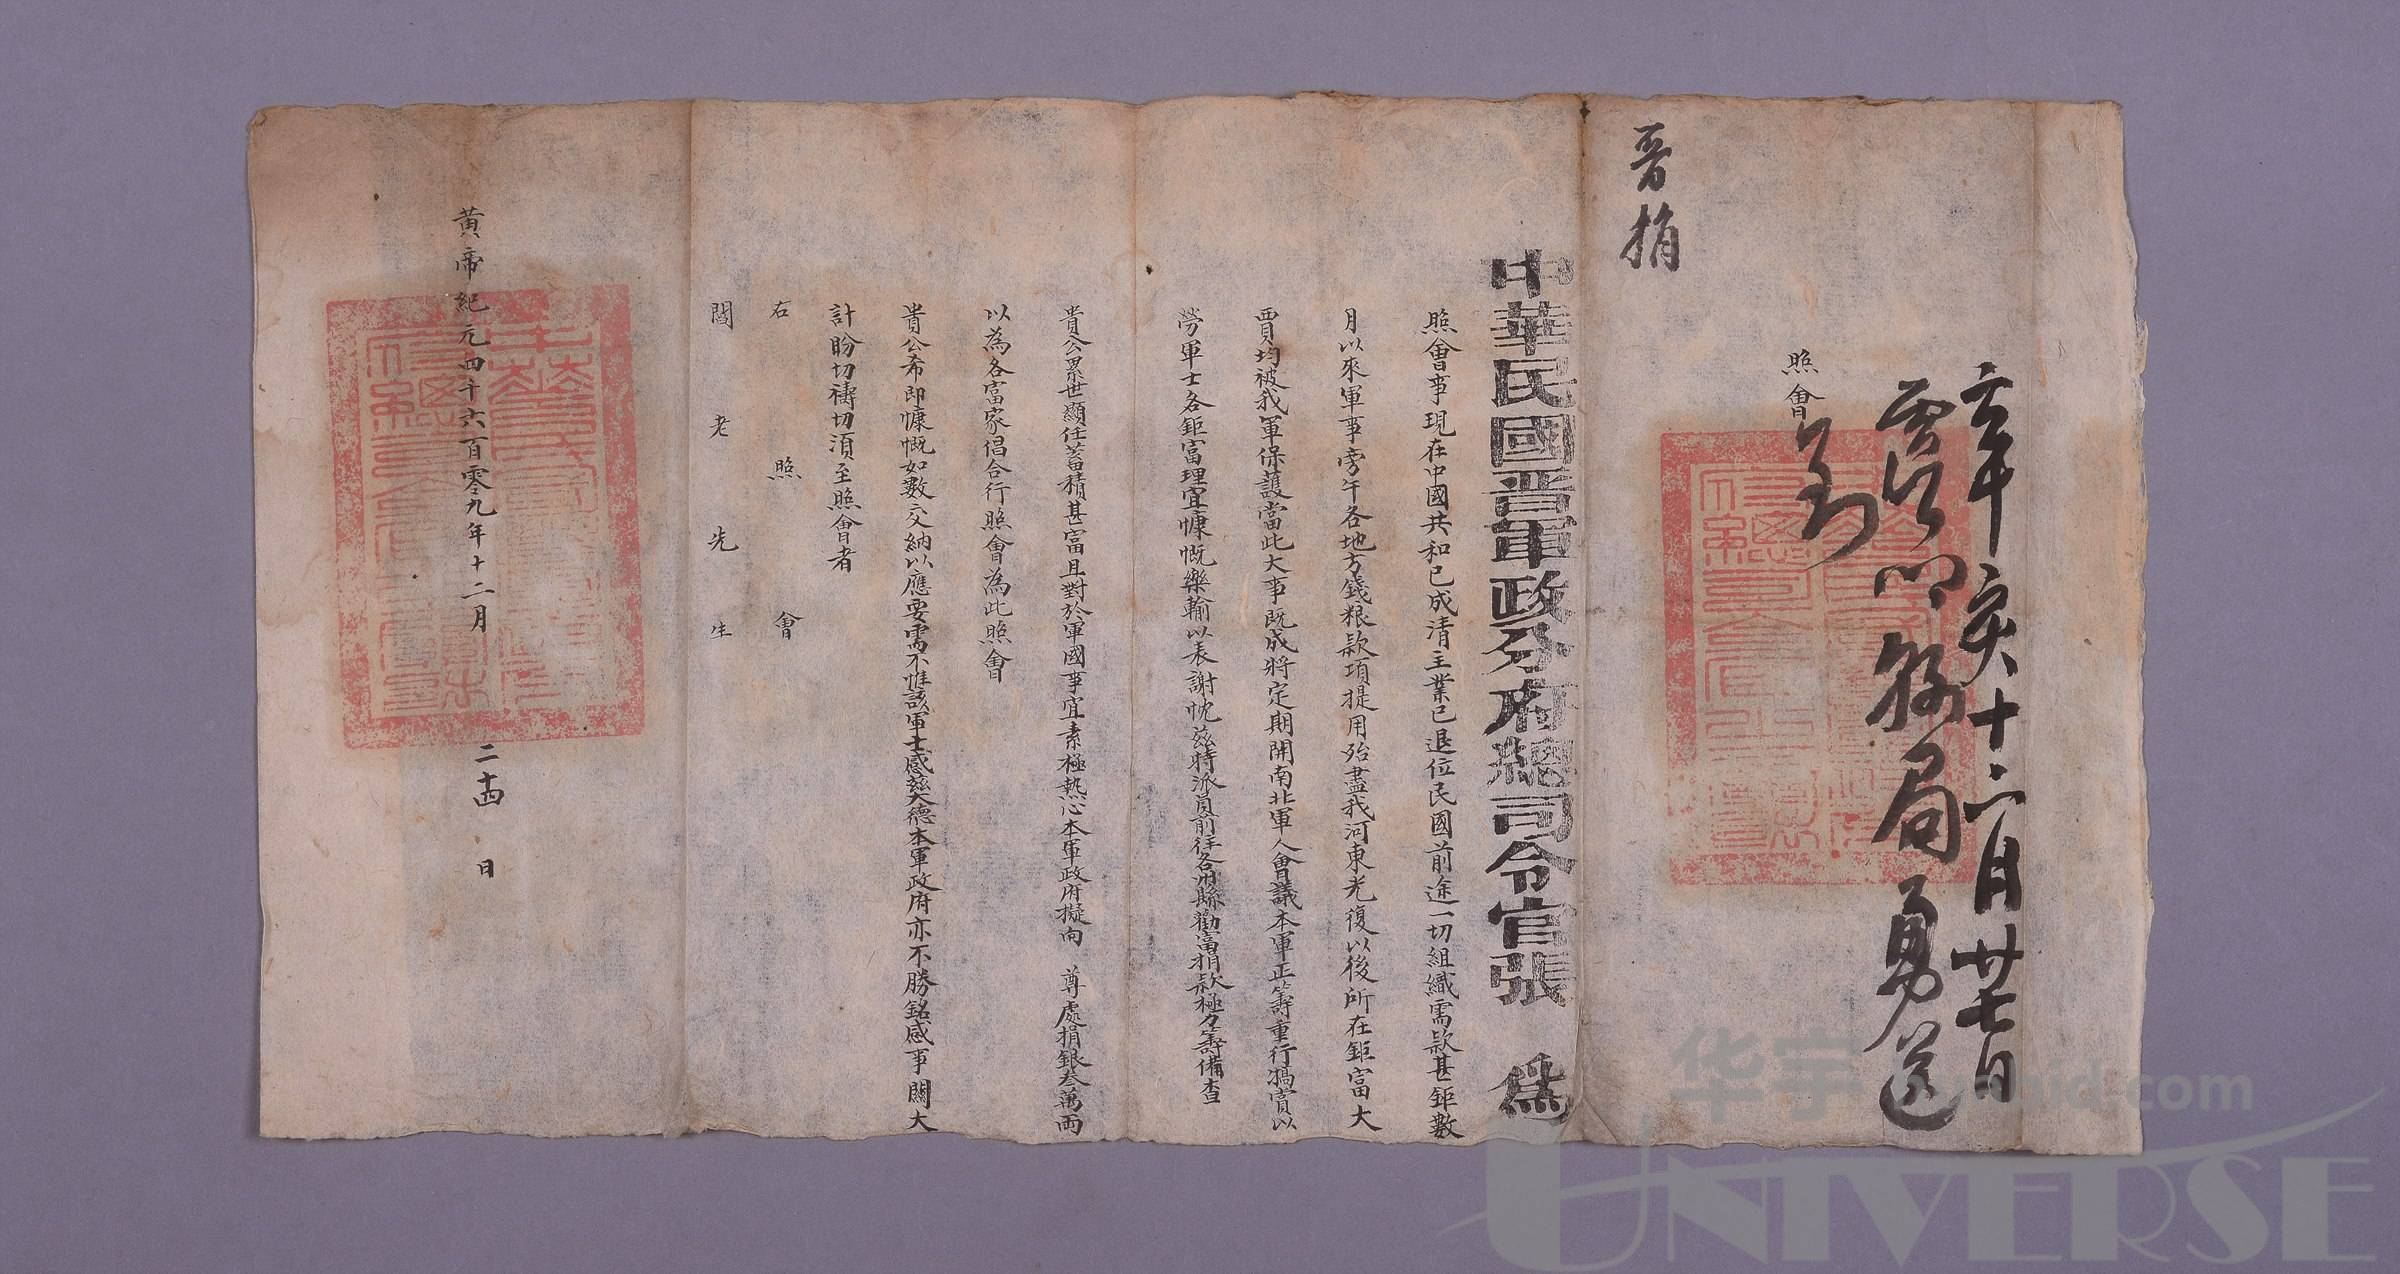 辛亥十二月廿七日
縣局勇送
到
照會
晋捐
中華民國晋軍政分府總司令官張　為
照會事現在中國共和已成清主業已退位民國前途一切組織需款甚鉅數
月以來軍事旁午各地方錢粮款項提用殆盡我河東光復以後所在鉅富大
賈均被我軍保護當此大事既成將定期開南北軍人會議本軍正籌重行犒賞以
勞軍士各鉅富理宜慷慨樂輸以表謝忱茲特派員前往各州縣勸富捐款極力籌備查
貴公累世顯仕蓄積甚富且對於軍國事宜素極熱心本軍政府擬向　尊處捐銀叁萬両
以為各富家倡合行照會為此照會
貴公希即慷慨如數交納以應要需不惟該軍士感茲大德本軍政府亦不勝銘感事關大
計盼切禱切須至照會者
右　照　會
閻　老　先　生
黃帝紀元四千六百零九年十二月　二十四　日
华宇
.com
UNIVERSE